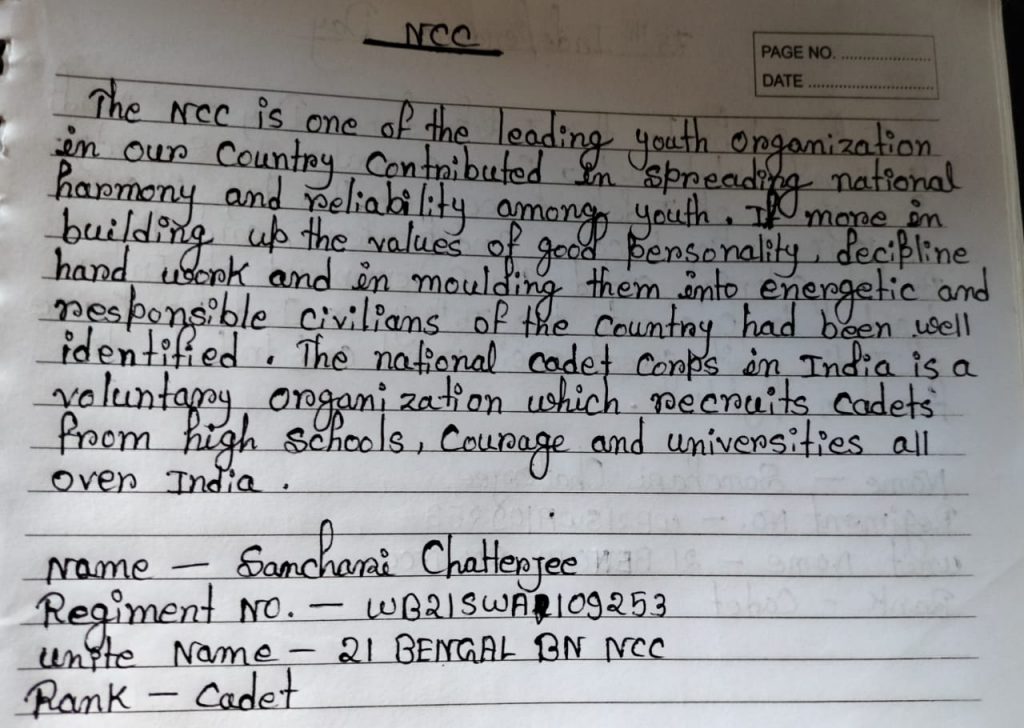 NCC
PAGE NO. ........................
DATE ..............................
The NCC is one of the leading youth organization
in our Country Contributed in spreading national
harmony and reliability among youth. It more in
building up the values of good personality, decipline
hand work and in moulding them into energetic and
responsible civilians of the Country had been well
identified. The national cadet Corps in India is a
voluntary organization which recruits cadets
from high schools, Courage and universities all
over India.
Name – Sanchari Chatterjee
Regiment NO. – WB21SWA109253
unite Name – 21 BENGAL BN NCC
Rank – Cadet